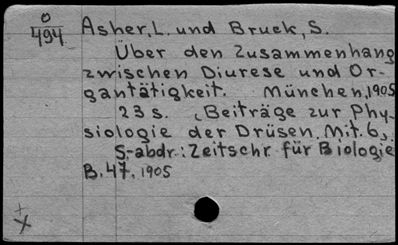 O
494
Asher, L. und Bruck, S.
Über den Zusammenhang
zwischen Diurese und Or-
gantätigkeit. München, 1905
23 s. (Beiträge zur Phy-
siologie der Drüsen. Mit. 6).
S.-abdr.: Zeitschr. für Biologie
B. 47. 1905
+
X